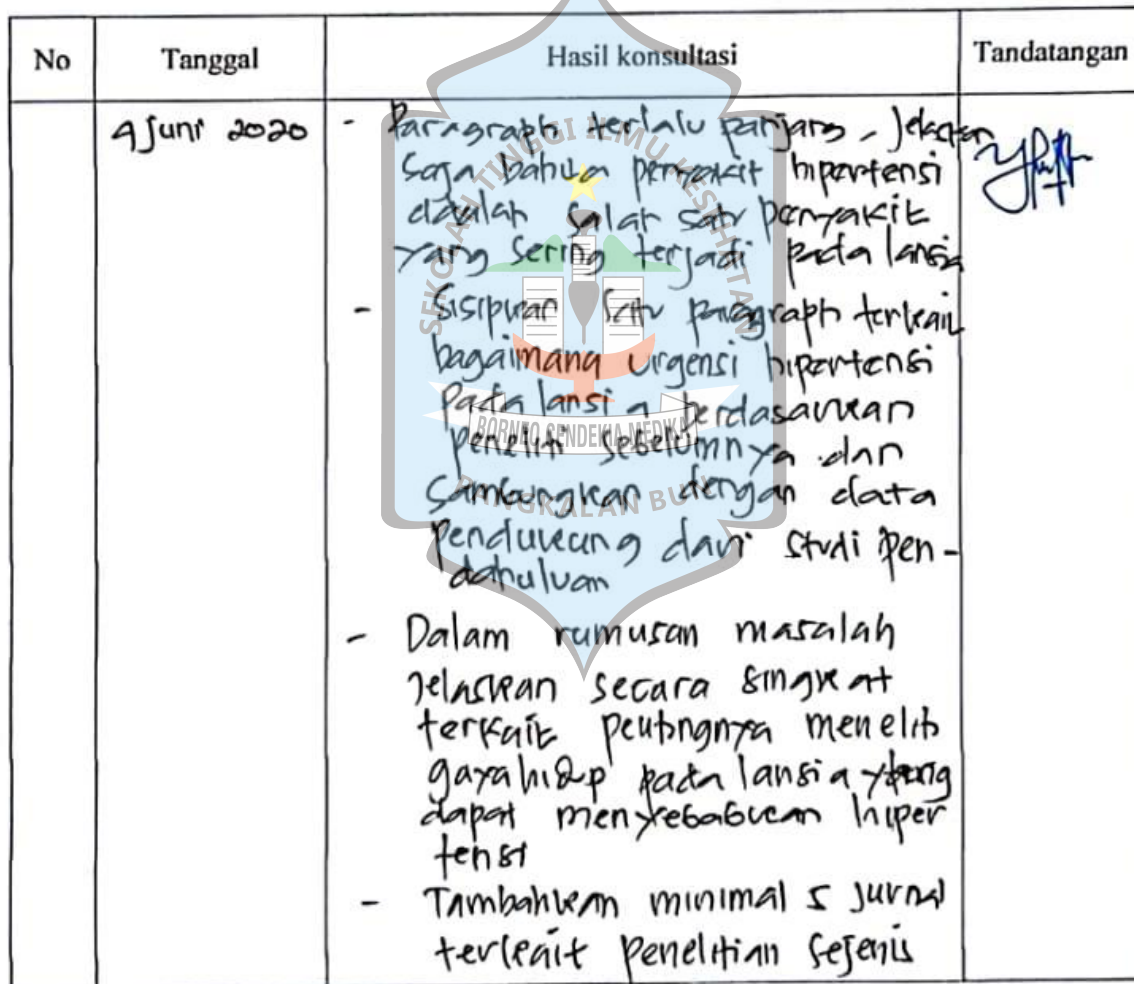 No Tanggal Hasil konsultasi Tandatangan
4 Juni 2020 - Paragraph terlalu panjang, Jelaskan
saja bahwa penyakit hipertensi
adalah salah satu penyakit
yang sering terjadi pada lansia
- Sisipkan satu paragraph terkait
bagaimana urgensi hipertensi
pada lansia berdasarkan
peneliti sebelumnya dan
sambungkan dengan data
pendukung dari studi pen-
dahuluan
- Dalam rumusan masalah
jelaskan secara singkat
terkait pentingnya meneliti
gaya hidup pada lansia yang
dapat menyebabkan hiper
tensi
- Tambahkan minimal 5 Jurnal
terkait penelitian sejenis
SEKOLAH TINGGI ILMU KESEHATAN
BORNEO CENDEKIA MEDIKA
PANGKALAN BUN